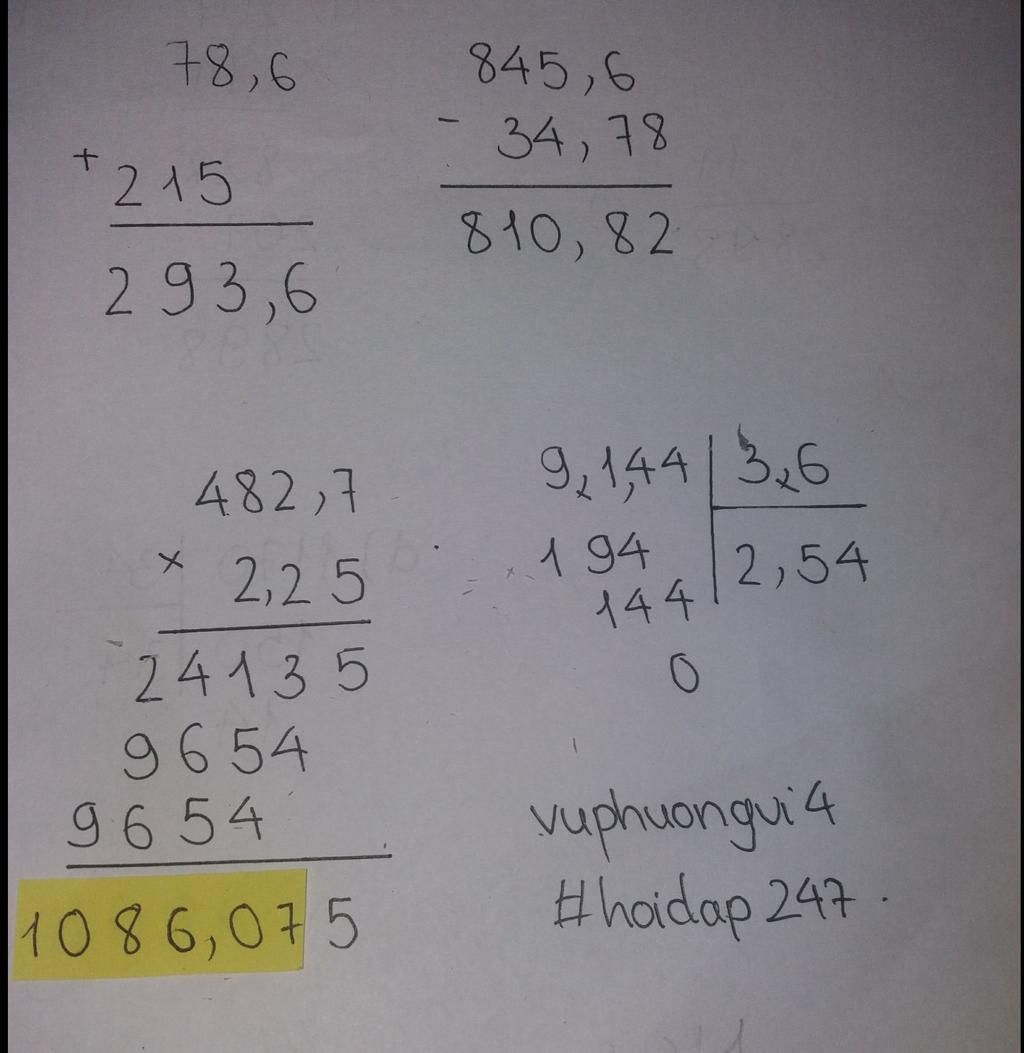 78,6
+
215
293,6
845,6
- 34,78
810,82
482,7
× 2,25
24135
9654
9654
1086,075
9,1,44 3,6
194 2,54
144
0
vuphuongvi4
#hoidap247.